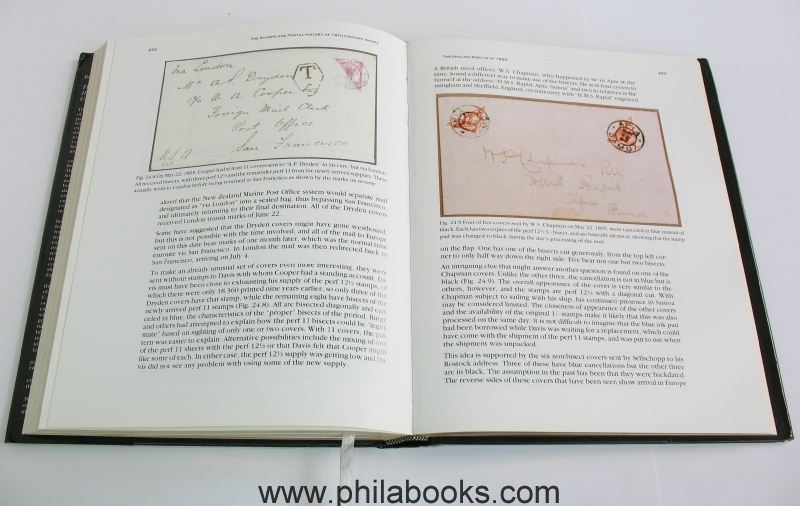 452
THE STAMPS AND POSTAL HISTORY OF 19TH CENTURY SAMOA
Via London
Mr A. P. Dryden
T
c/o W. A. Cooper Esq
Foreign Mail Clerk
Post Office
San Francisco
U S A
Fig. 24.8 On May 22, 1895, Cooper had at least 11 covers sent to "A.P. Dryden" in his care, but via London.
All received bisects, with three perf 12½ and the remainder perf 11 from the newly arrived supplies. These
actually went to London before being returned to San Francisco as shown by the marks on reverse.
alized that the New Zealand Marine Post Office system would separate mail
designated as "via London" into a sealed bag, thus bypassing San Francisco,
and ultimately returning to their final destination. All of the Dryden covers
received London transit marks of June 22.
Some have suggested that the Dryden covers might have gone westbound,
but this is not possible with the time involved, and all of the mail to Europe
sent on this date bear marks of one month later, which was the normal time
enroute via San Francisco. In London the mail was then redirected back to
San Francisco, arriving on July 4.
To make an already unusual set of covers even more interesting, they were
sent without stamps to Davis with whom Cooper had a standing account. Da-
vis must have been close to exhausting his supply of the perf 12½ stamps, of
which there were only 18,360 printed nine years earlier, so only three of the
Dryden covers have that stamp, while the remaining eight have bisects of the
newly arrived perf 11 stamps (Fig. 24.8). All are bisected diagonally and can-
celed in blue, the characteristics of the "proper" bisects of the period. Burge
and others had attempted to explain how the perf 11 bisects could be "legiti-
mate" based on sighting of only one or two covers. With 11 covers, the pat-
tern was easier to explain. Alternative possibilities include the mixing of one
of the perf 11 sheets with the perf 12½ or that Davis felt that Cooper might
like some of each. In either case, the perf 12½ supply was getting low and Da-
vis did not see any problem with using some of the new supply.
THE SPELLING BISECTS OF 1895
453
A British naval officer, W.S. Chapman, who happened to be in Apia at the
time, found a different way to make use of the bisects. He sent four covers to
himself at the address "H.M.S. Rapid, Apia, Samoa" and two to relatives in Bir-
mingham and Sheffield, England, on stationery with "H.M.S. Rapid" engraved
APIA
SAMOA
Apia
Samoa
Fig. 24.9 Four of five covers sent by W.S. Chapman on May 22, 1895, were canceled in blue instead of
black. Each has two copies of the perf 12½ 1/- bisect, and are basically identical, showing that the stamp
pad was changed to black during the day's processing of the mail.
on the flap. One has one of the bisects cut generously, from the top left cor-
ner to only half way down the right side. Five bear not one but two bisects.
An intriguing clue that might answer another question is found on one of the
Chapman covers. Unlike the other three, the cancellation is not in blue but is
black (Fig. 24.9). The overall appearance of the cover is very similar to the
others, however, and the stamps are perf 12½ with a diagonal cut. With
Chapman subject to sailing with his ship, his continued presence in Samoa
may be considered limited. The closeness of appearance of the other covers
and the availability of the original 1/- stamps make it likely that this was also
processed on the same day. It is not difficult to imagine that the blue ink pad
had been borrowed while Davis was waiting for a replacement, which could
have come with the shipment of the perf 11 stamps, and was put to use when
the shipment was unpacked.
This idea is supported by the six non-bisect covers sent by Sellschopp to his
Rostock address. Three of these have blue cancellations but the other three
are in black. The assumption in the past has been that they were backdated.
The reverse sides of these covers that have been seen show arrival in Europe
www.philabooks.com